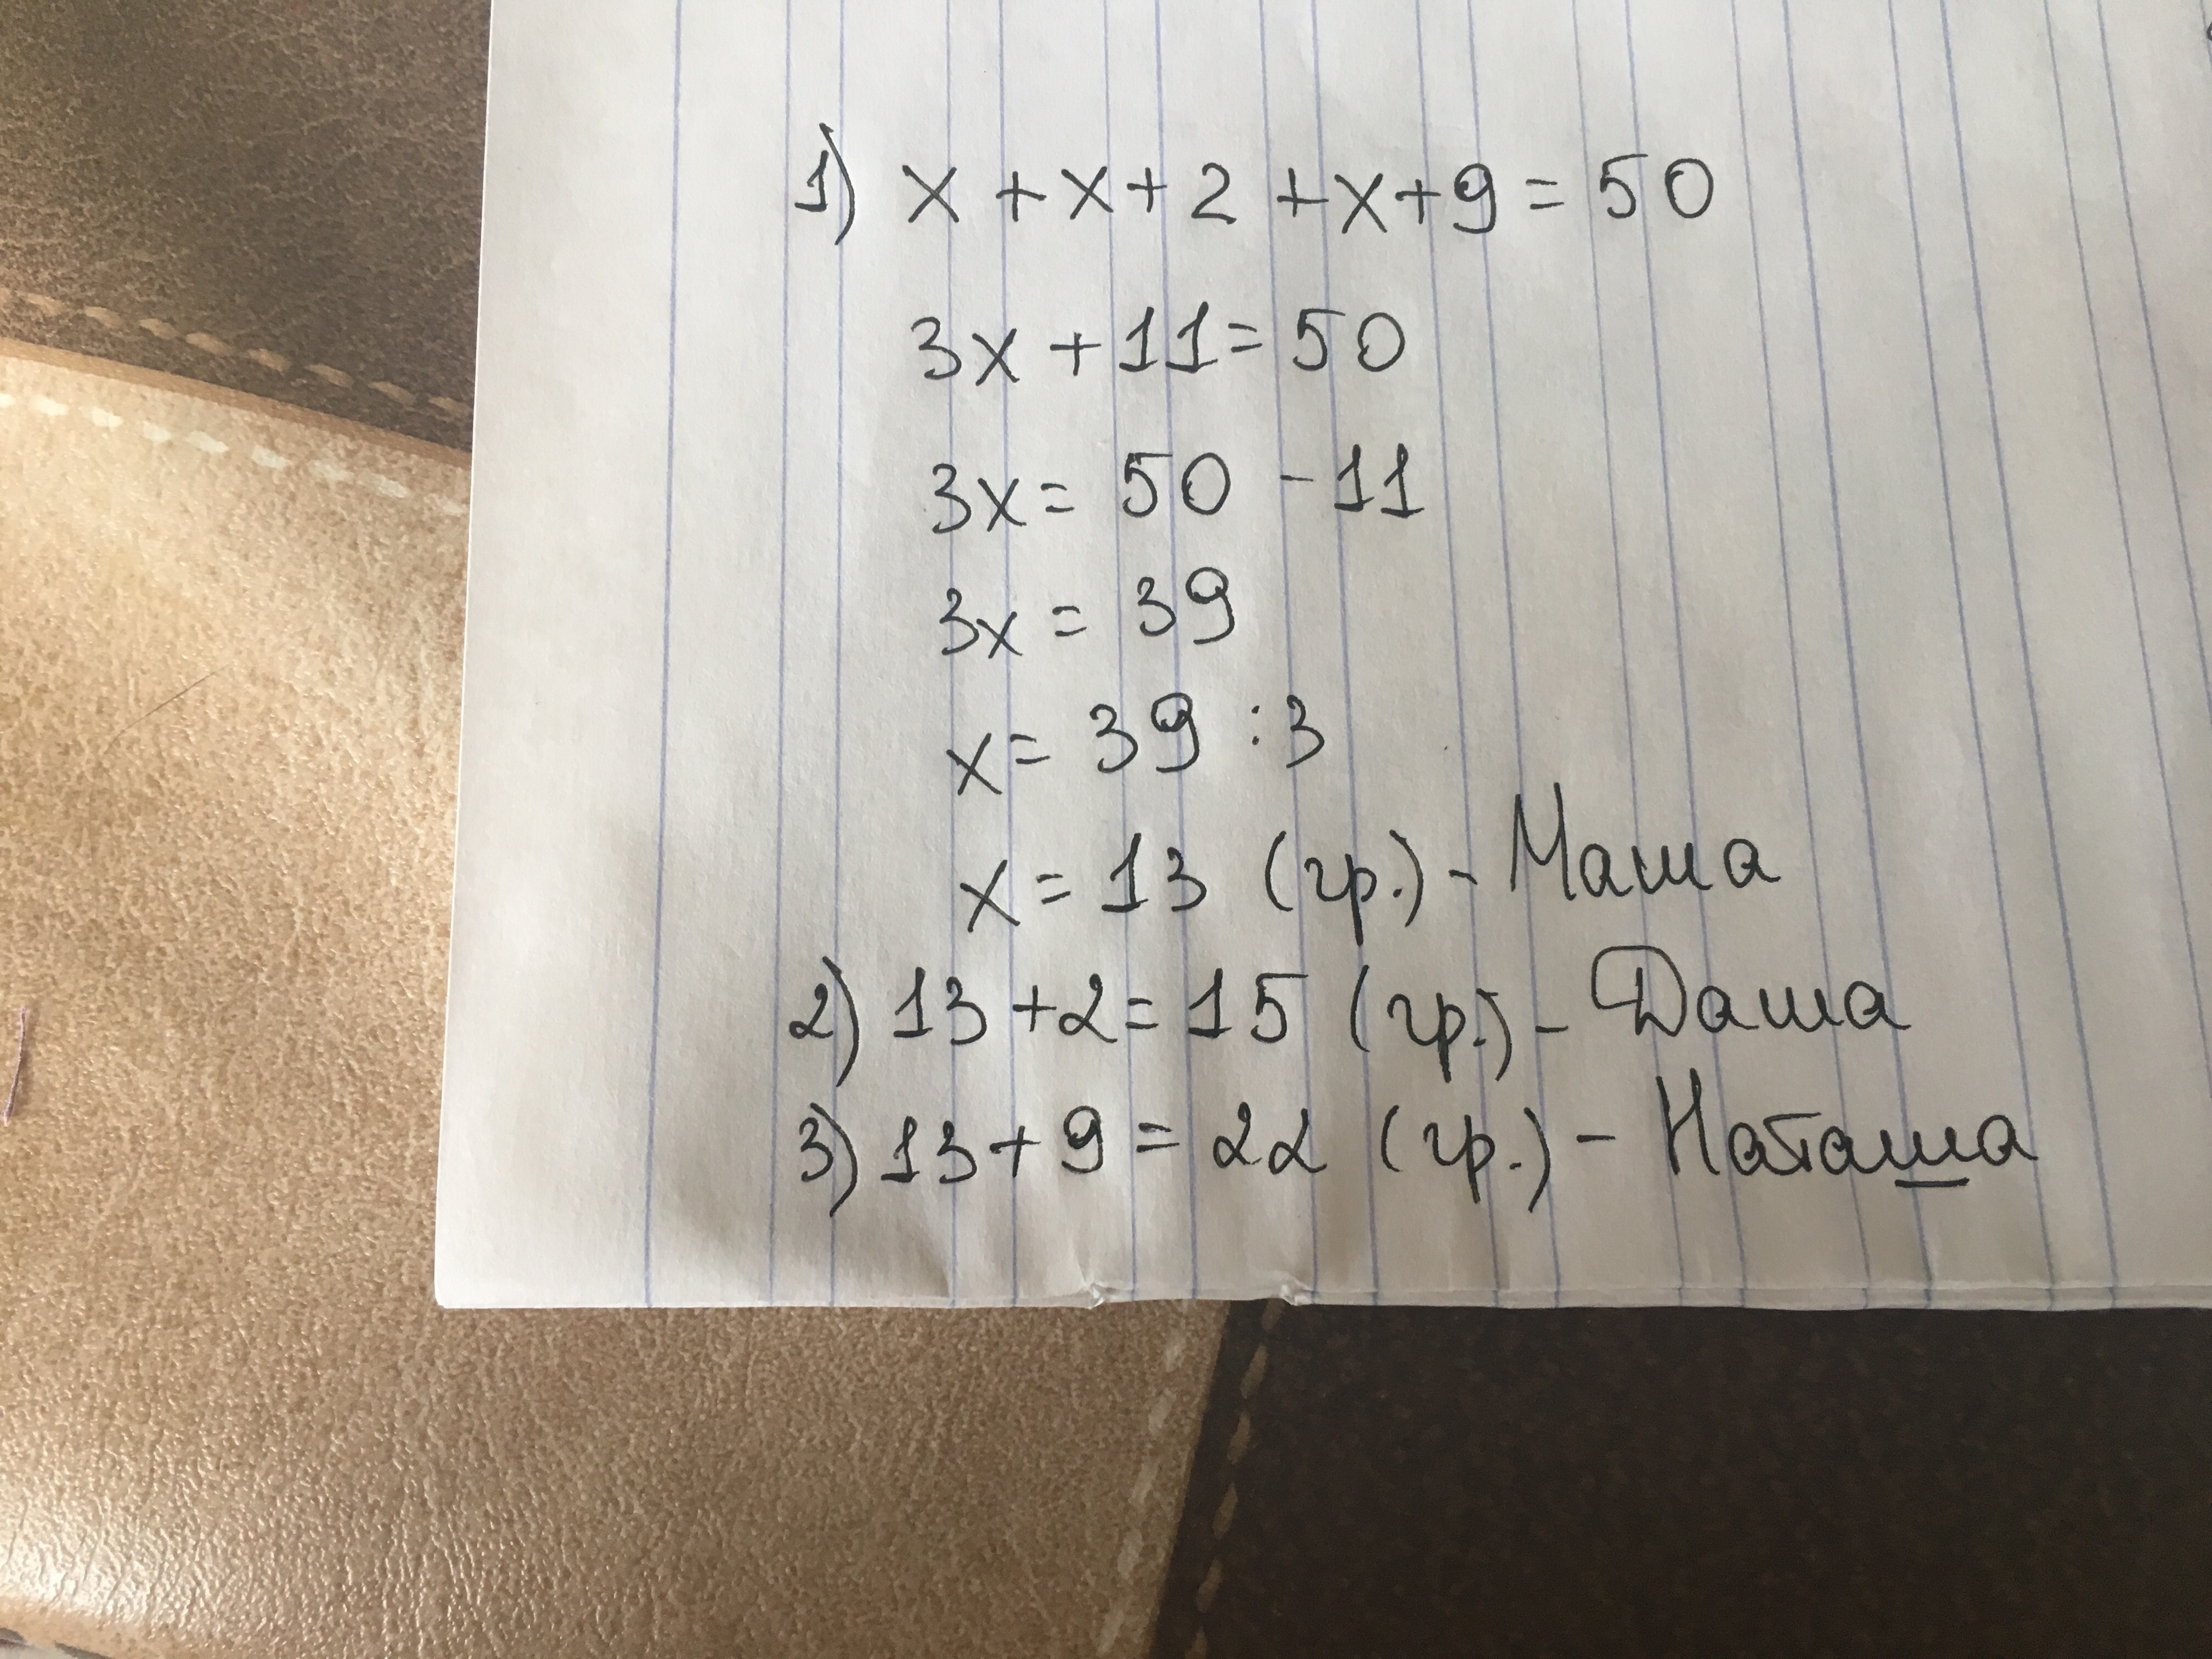 1) x + x + 2 + x + 9 = 50
3x + 11 = 50
3x = 50 - 11
3x = 39
x = 39 : 3
x = 13 (гр.) - Маша
2) 13 + 2 = 15 (гр.) - Даша
3) 13 + 9 = 22 (гр.) - Наташа